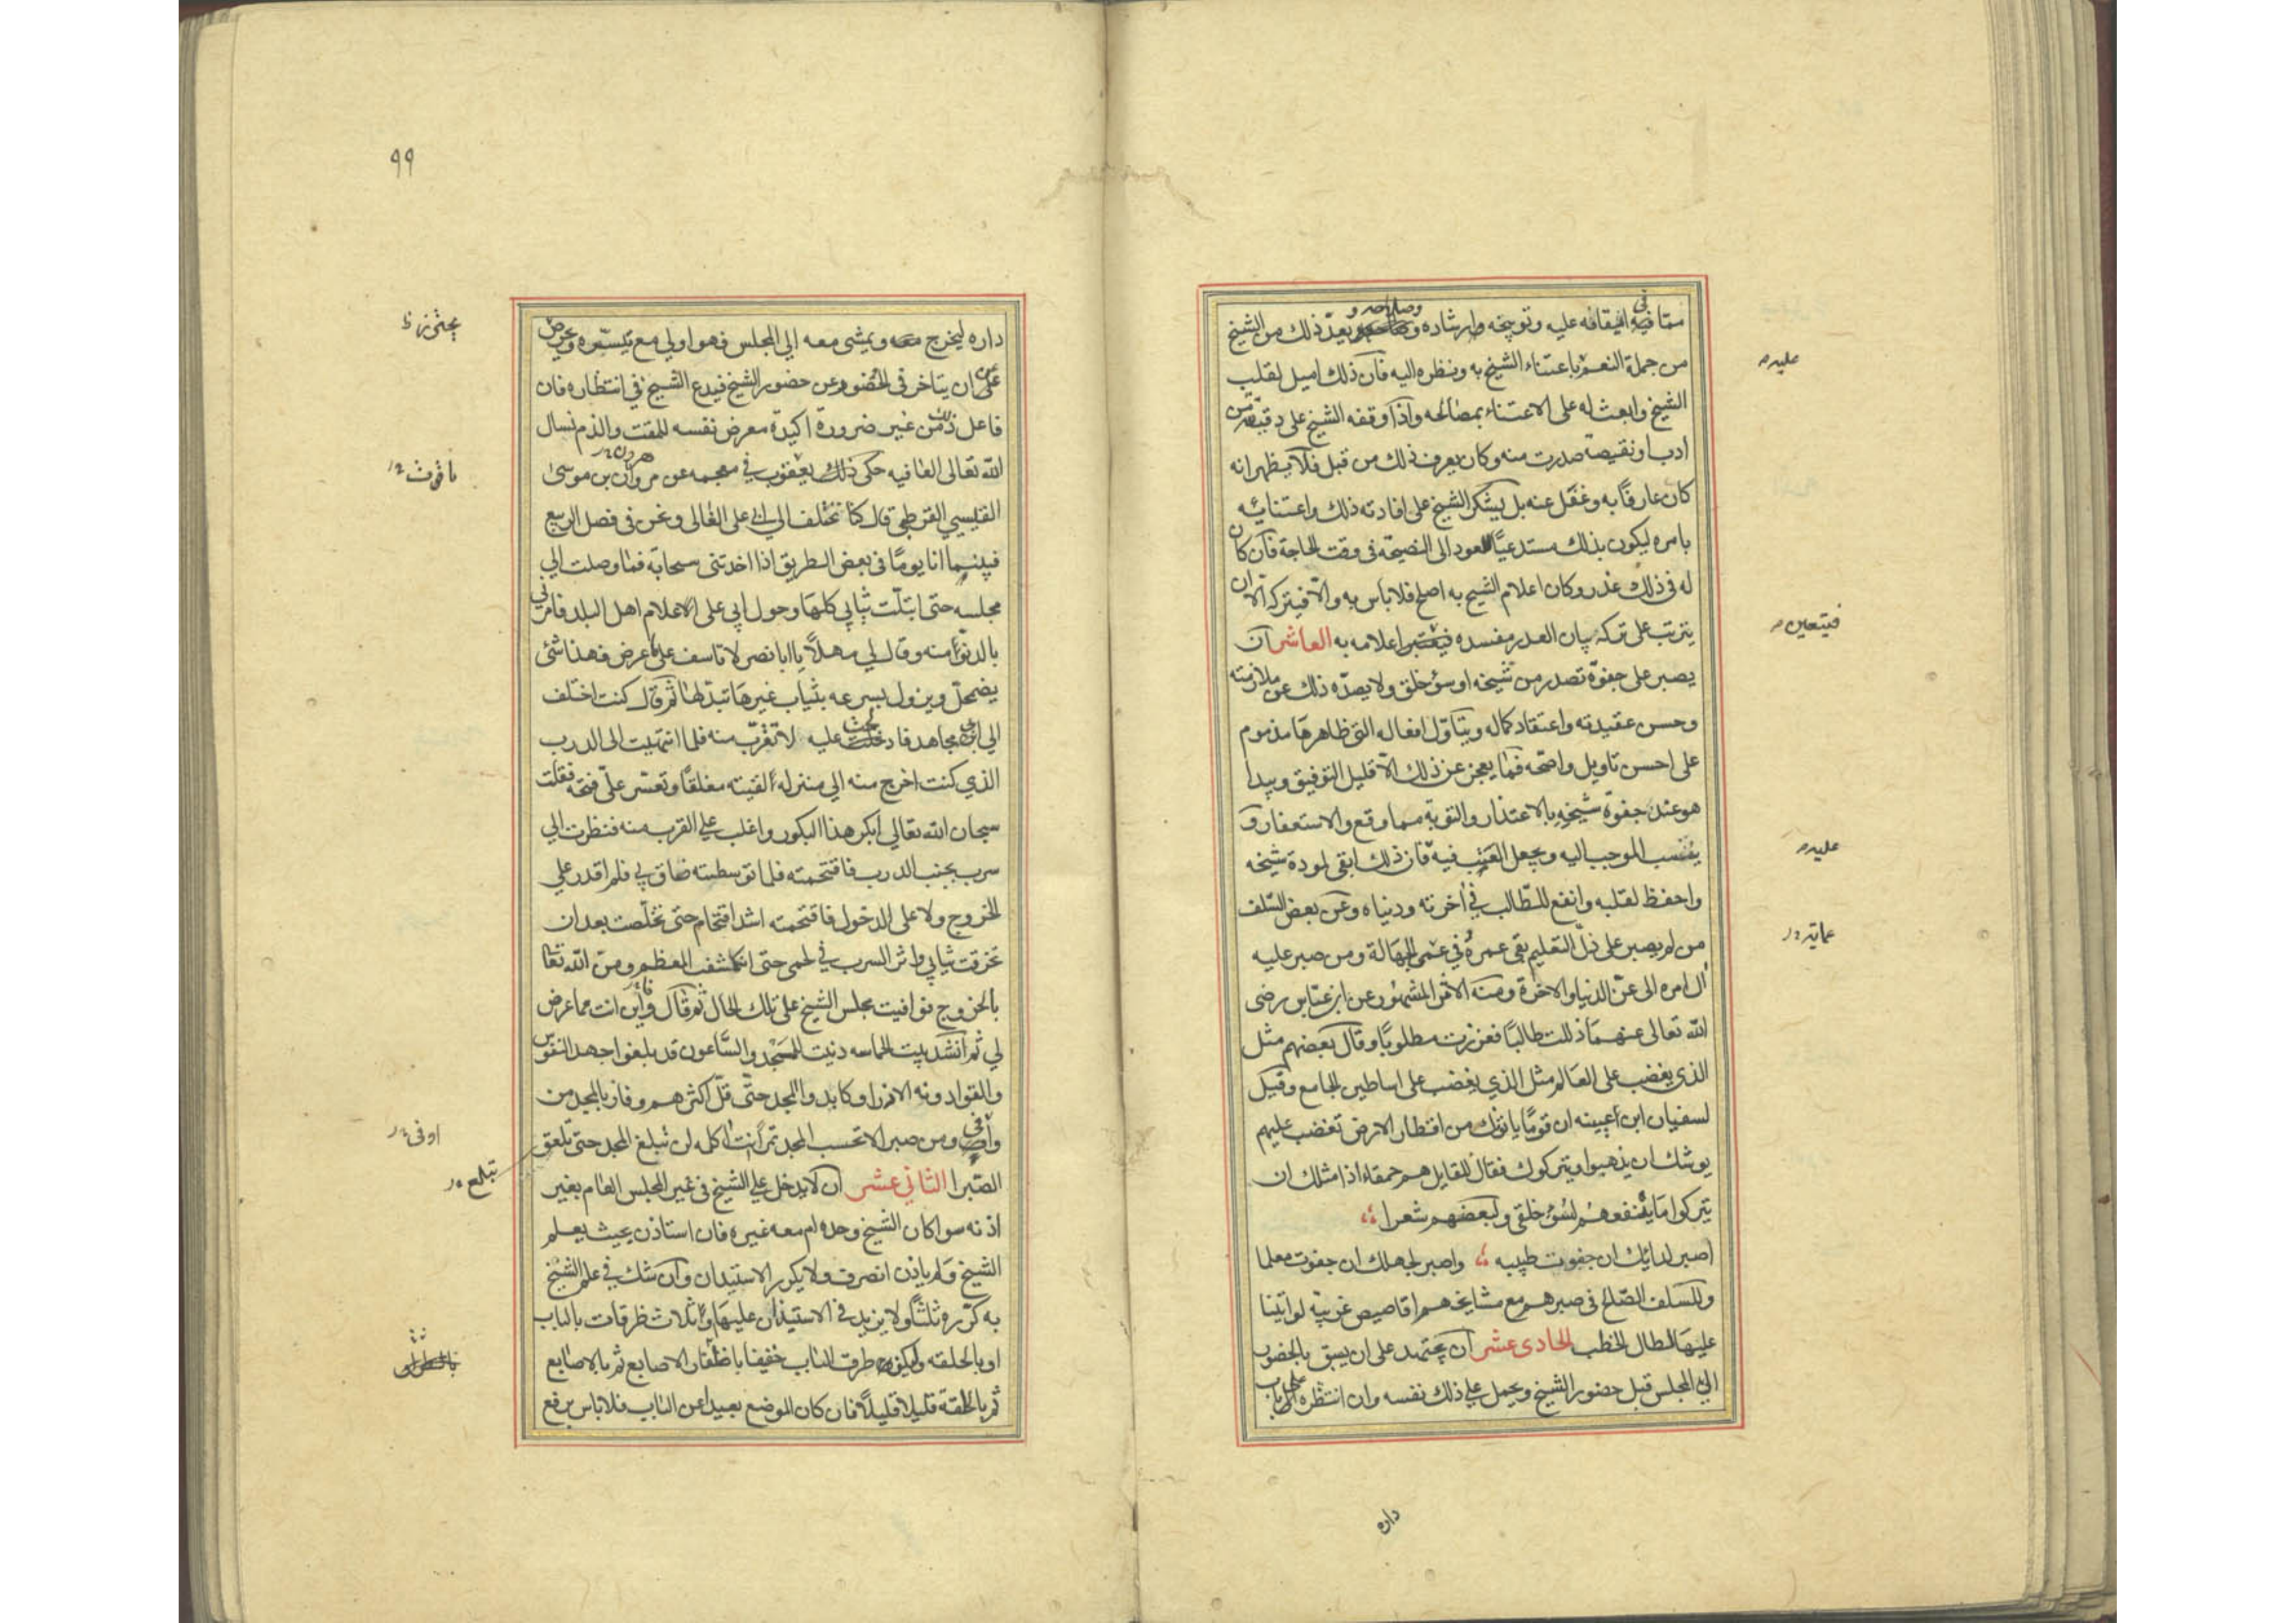 مما فيه ايقافه عليه وتوبيخه وارشاده وصلاحه و يعدّ ذلك من الشيخ
من جملة النعم باعتناء الشيخ به ونظره اليه فان ذلك اميل لقلب
الشيخ وابعث له على الاعتناء بمصالحه واذا وقفه الشيخ على دقيقة من
ادب او نقيصة صدرت منه وكان يعرف ذلك من قبل فلا يظهر انه
كان عارفًا به وغفل عنه بل يشكر الشيخ على افادته ذلك واعتنائه
بامره ليكون بذلك مستدعيًا للعود الى النصيحة فى وقت الحاجة فان كان
له فى ذلك عذر وكان اعلام الشيخ به اصلح فلا باس به والا فيتركه الا ان
يترتب على تركه بيان العذر مفسده اعلامه به العاشر ان
يصبر على جفوة تصدر من شيخه او سؤ خلق ولا يصده ذلك عن ملازمته
وحسن عقيدته واعتقاد كماله ويتاول افعاله التى ظاهرها مذموم
على احسن تاويل واصحه فما يعجز عن ذلك الا قليل التوفيق ويبدا
هو عند جفوة شيخه بالاعتذار والتوبة مما وقع والاستغفار و
ينسب الموجب اليه ويجعل العتب فيه فان ذلك ابقى لمودة شيخه
واحفظ لقلبه وانفع للطالب في اخرته ودنياه وعن بعض السلف
من لم يصبر على ذل التعليم بقى عمره في عمى الجهالة ومن صبر عليه
ال امره الى عز الدنيا والاخرة ومنه الاثر المشهور عن ابن عباس رضى
الله تعالى عنهما ذللت طالبًا فعززت مطلوبًا وقال بعضهم مثل
الذى يغضب على العالم مثل الذي يغضب على اساطين الجامع وقيل
لسفيان ابن عيينه ان قومًا ياتونك من اقطار الارض تغضب عليهم
يوشك ان يذهبوا ويتركوك فقال للقايل هم حمقاء اذا مثلك ان
يتركوا ما ينفعهم لسؤ خلقي ولبعضهم شعرا
اصبر لدائك ان جفوت طبيبه واصبر لجهلك ان جفوت معلما
وللسلف الصلح فى صبرهم مع مشايخهم اقاصيص غريبه لو اتينا
عليها لطال الخطب الحادى عشر ان يجتهد على ان يسبق بالحضور
الى المجلس قبل حضور الشيخ ويحمل على ذلك نفسه وان انتظره على باب
داره
عليه م
فيتعين م
عليه م
عمايه ١٢
٩٩
داره ليخرج ويمشى معه الي المجلس فهو اولي مع تيسره ويحرص
على ان يتاخر فى الحضور عن حضور الشيخ فيدع الشيخ في انتظاره فان
فاعل ذلك من غير ضرورة اكيدة معرض نفسه للمقت والذم نسال
الله تعالى العافيه حكى ذلك يعقوب في معجمه عن هرون بن موسى
القيسي القرطبي قال كنا نختلف الى ابي على القالى ونحن فى فصل الربيع
فبينما انا يومًا فى بعض الطريق اذا اخذتنى سحابة فما وصلت الي
مجلسه حتى ابتلت ثيابي كلها وحول ابي على الاعلام اهل البلد فامرني
بالدنو منه وقال لي مهلًا يا ابا نصر لا تاسف على ما عرض فهذا شئ
يضمحل ويزول بسرعه بثياب غيرها تبدلها ثم قال كنت اختلف
الي ابن مجاهد فادلجت عليه لاتقرب منه فلما انتهيت الى الدرب
الذي كنت اخرج منه الي منزله الفيته مغلقًا وتعسر على فتحه فقلت
سبحان الله تعالى ابكر هذا البكور واغلب على القرب منه فنظرت الي
سرب بجنب الدرب فاقتحمته فلما توسطته ضاق بي فلم اقدر على
الخروج ولا على الدخول فاقتحمته اشد اقتحام حتى تخلصت بعد ان
تخرقت ثيابي واثر السرب في لحمى حتى انكشف العظم ومن الله تعا
بالخروج فوافيت مجلس الشيخ على تلك الحال ثم قال واين انت مما عرض
لي ثم انشد بيت الحماسه دنيت للمجد والساعون قد بلغوا جهد النفوس
والقوا دونه الازرا وكابدوا المجد حتى قل اكثرهم وفاز بالمجد من
وافى ومن صبرا لا تحسب المجد تمرًا انت اكله لن تبلغ المجد حتى تلعق
الصبرا الثاني عشر ان لا يدخل على الشيخ فى غير المجلس العام بغير
اذنه سوا كان الشيخ وحده ام معه غيره فان استاذن بحيث يعلم
الشيخ ولم ياذن انصرف ولا يكرر الاستيذان وان شك في علم الشيخ
به كرره ثلثًا ولا يزيد في الاستيذان عليها او ثلاث طرقات بالباب
او بالحلقه وليكن طرق الباب خفيفا باظفار الاصابع ثم بالاصابع
ثم بالحلقة قليلا قليلًا فان كان الموضع بعيدا عن الباب فلا باس برفع
ياقوت ١٢
اوفى ١٢
تبلع ١٢